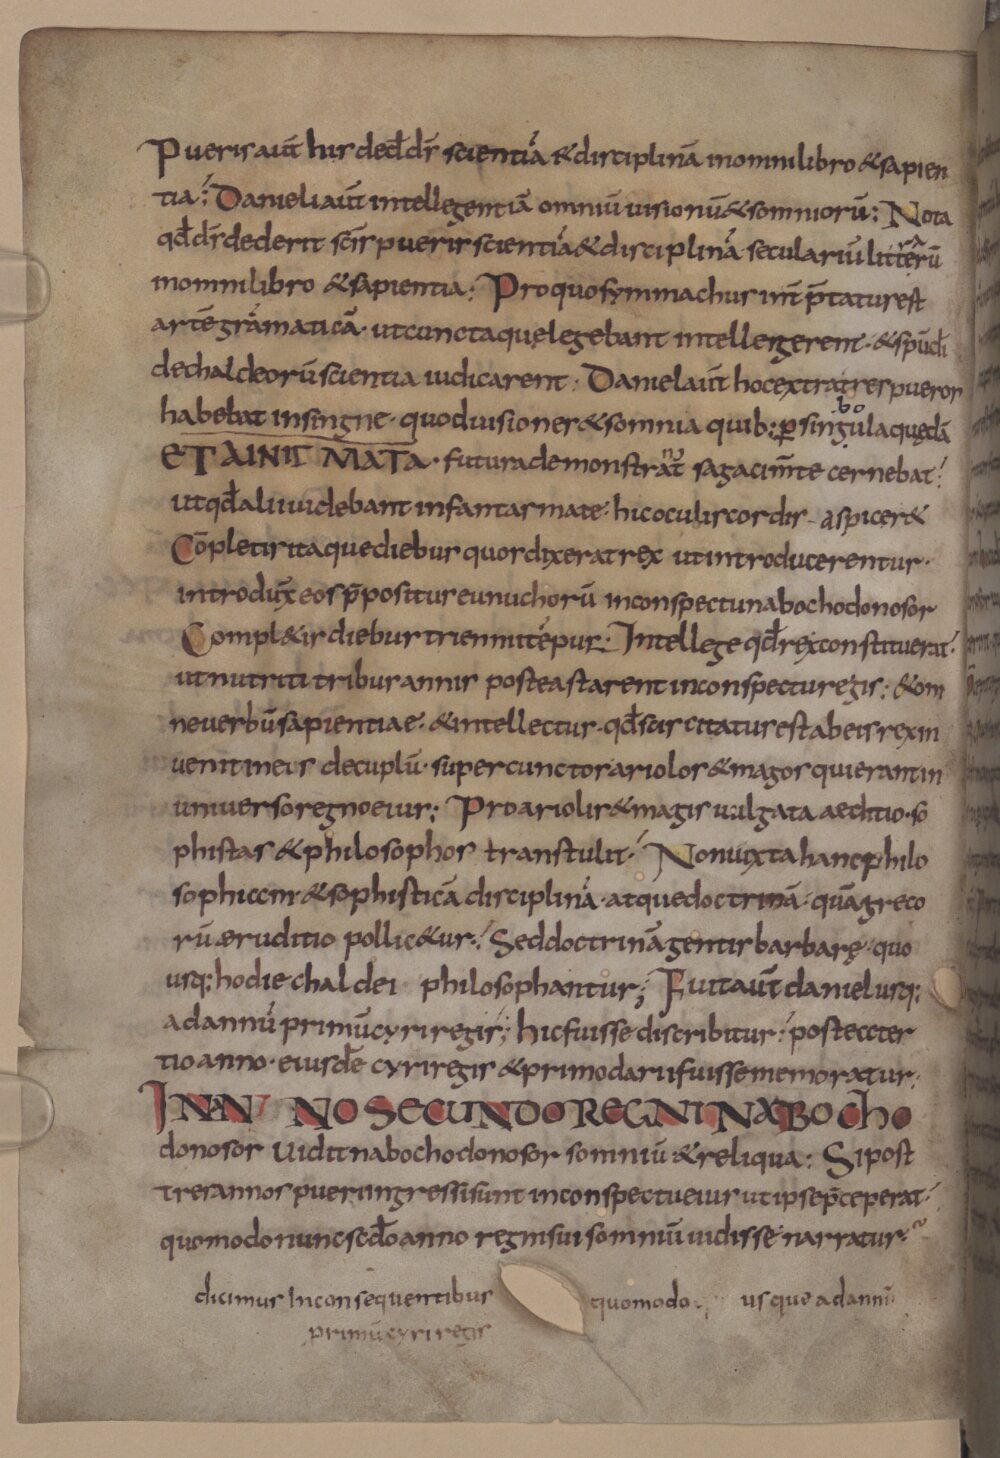 Pueris aūt his ded d̄s scientiā & disciplinā in omni libro & sapien
tia; Danieli aūt intellegentiā omniū visionū & somniorū; Nota
qđ d̄s dederit sc̄is pueris scientiā & disciplinā seculariū litterarū
in omni libro & sapientia; Pro quo symmachus int̄ p̄tatur est
artē grāmaticā. ut cuncta que legebant intellegerent. & sp̄u d̄i
de chaldeorū scientia iudicarent. Daniel aūt hoc extra tres pueros
habebat insingne. quod visiones & somnia quib; p singula quedā
bo
ET AINIΓMATA. futura demonstrant sagaci m̄te cernebat;
ut qđ alii videbant in fantasmate. hic oculis cordis aspicer&
Cōpletis itaque diebus quos dixerat rex ut introducerentur.
introdux̄ eos p̄positus eunuchorū in conspectu nabochodonosor
Compl&is diebus triennii tēpus. Intellege qđ rex constituerat.
ut nutriti tribus annis postea starent in conspectu regis; & om
ne verbū sapientiae. & intellectus. qđ sciscitatus est ab eis rex in
venit in eis decuplū. super cunctos ariolos & magos qui erant in
universo regno eius; Pro ariolis & magis vulgata aeditio. so
phistas & philosophos transtulit. Non iuxta hanc philo
sophiccm. & sophisticā disciplinā. atque doctrinā. quā greco
rū æruditio pollic&ur. Sed doctrinā gentis barbarę. quo
usq; hodie chaldei philosophantur; Fuit aūt daniel usq;
ad annū primū cyri regis; hic fuisse discribitur. postea ter
tio anno. eiusdē cyri regis & primo darii fuisse memoratur.
IN AN NO SECUNDO REGNI NABOCHO
donosor vidit nabochodonosor somniū & reliqua; Si post
tres annos pueri ingressi sunt in conspectu eius ut ipse p̄ceperat.
quomodo nunc secdō anno regni sui somniū vidisse narratur.
dicimus In consequentibus quomodo. usque ad annū
primū cyri regis